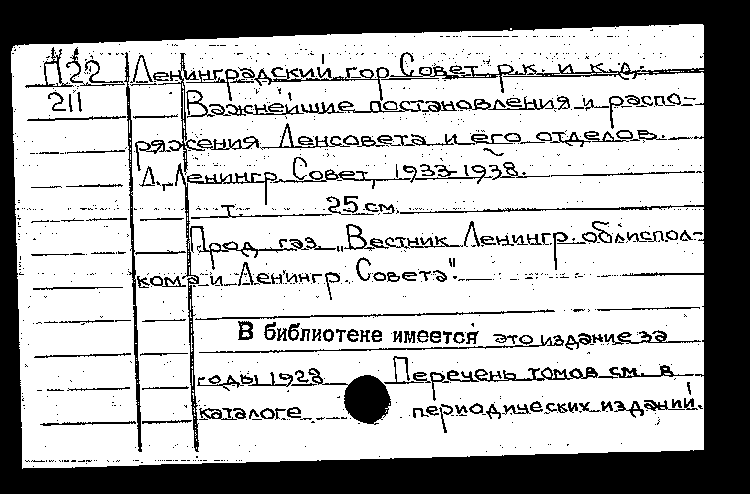 П22 Ленинградский гор. Совет р.к. и к.д.
211 Важнейшие постановления и распо-
ряжения Ленсовета и его отделов.
Л., Ленингр. Совет, 1933-1938.
т. 25 см.
Прод. газ. „Вестник Ленингр. облиспол-
кома и Ленингр. Совета".
В библиотеке имеется это издание за
годы 1928 Перечень томов см. в
каталоге периодических изданий.